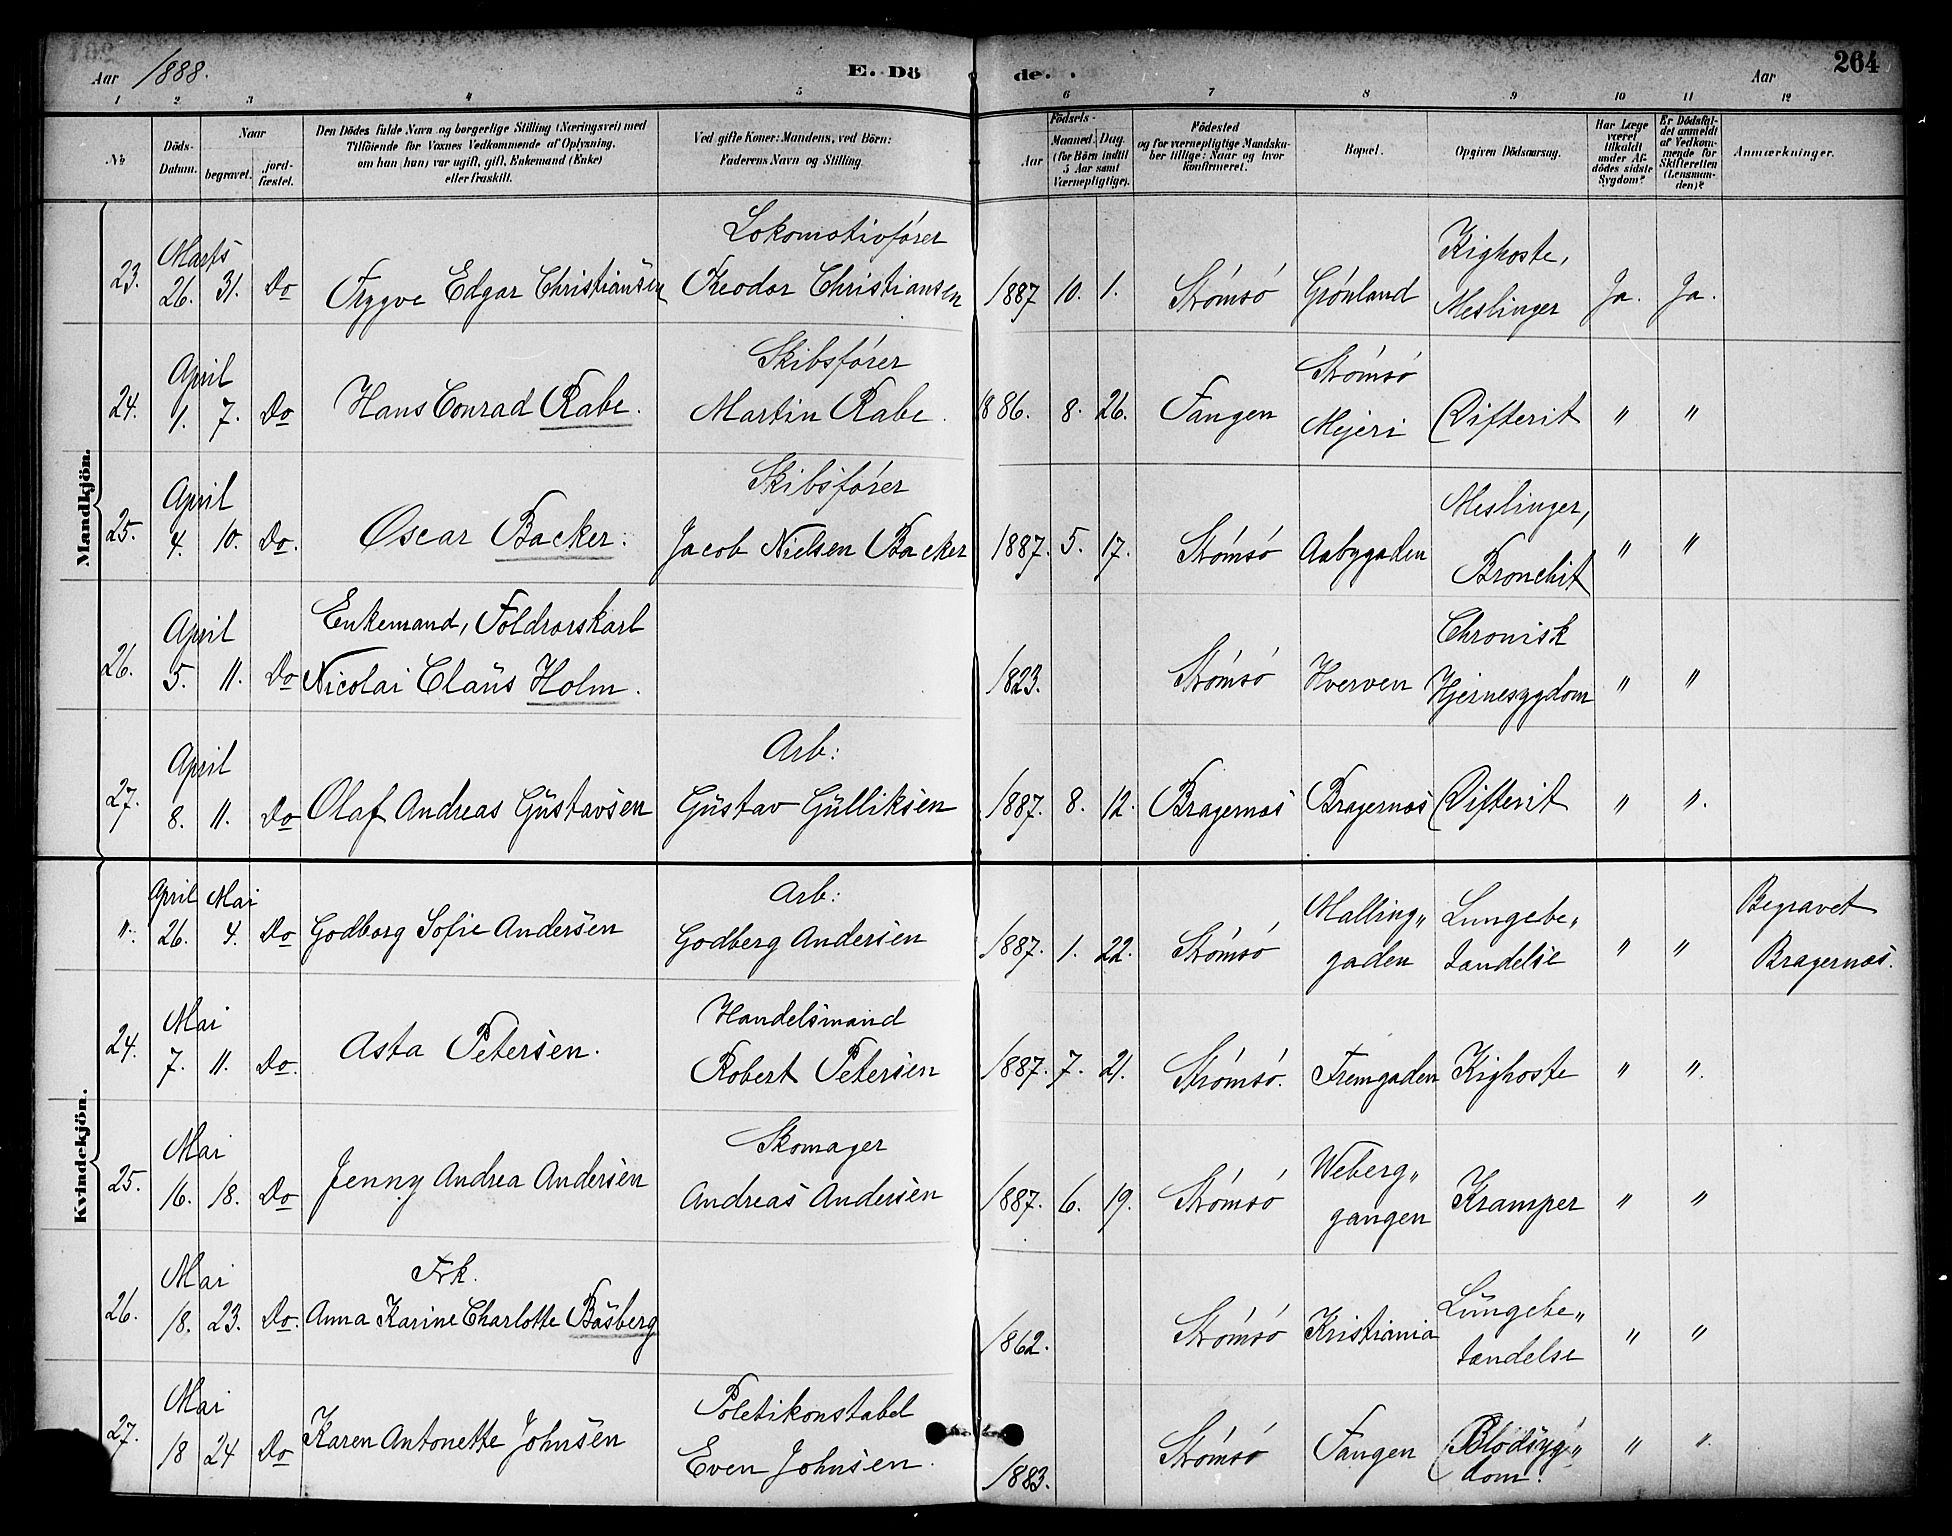 Aar 1888. E. Dö de. Aar 264
1 2 3 4 5 6 7 8 9 10 11 12
No
Döds-Datum.
Naar
begravet.
jord-fæstet.
Den Dödes fulde Navn og borgerlige Stilling (Næringsvei) med
Tilföiende for Voxnes Vedkommende af Oplysning,
om han (hun) var ugift, gift, Enkemand (Enke)
eller fraskilt.
Ved gifte Koner: Mandens, ved Börn:
Faderens Navn og Stilling.
Födsels-
Aar Maaned. Dag.
(for Börn indtil
5 Aar samt
Værnepligtige).
Födested
og for værnepligtige Mandska-
ber tillige: Naar og hvor
konfirmeret.
Bopæl.
Opgiven Dödsaarsag.
Har Læge
været
tilkaldt
under Af-
dödes sidste
Sygdom?
Er Dödsfal-
det anmeldt
af Vedkom-
mende for
Skifteretten
(Lensman-
den)?
Anmærkninger.
Mandkjön.
Marts Lokomotivfører Kighoste,
23. 26. 31. Do Trygve Edgar Christiansen Theodor Christiansen 1887 10. 1. Strømsø Grønland Meslinger Ja. Ja.
April Skibsfører Strømsø
24. 1. 7. Do Hans Conrad Rabe. Martin Rabe. 1886. 8. 26. Tangen Mejeri Difterit " "
April Skibsfører Meslinger,
25. 4. 10. Do. Oscar Backer. Jacob Nielsen Backer 1887. 5. 17. Strømsø Aabygaden Bronchit " "
April Enkemand, Føldraarskarl Chronisk
26. 5. 11. Do Nicolai Claus Holm. 1823. Strømsø Hverven Hjernesygdom " "
April Arb:
27. 8. 11. Do Olaf Andreas Gustavsen Gustav Gulliksen 1887. 8. 12. Bragernæs Bragernæs Difterit " ".
Kvindekjön.
April Mai Arb: Malling„ Lungebe„ Begravet
". 26. 4. Do Godborg Sofie Andersen Godberg Andersen 1887. 1. 22. Strømsø gaden tændelse " " Bragernæs.
Mai Handelsmand
24. 7. 11. Do. Asta Petersen. Robert Petersen 1887. 7. 21. Strømsø. Fremgaden Kighoste " ".
Mai Skomager Weberg„
25. 16. 18. Do Jenny Andrea Andersen Andreas Andersen 1887. 6. 19. Strømsø gangen Kramper " "
Mai Frk. Lungebe„
26. 18. 23. Do. Anna Karine Charlotte Båsberg 1862. Strømsø Kristiania tændelse " "
Mai Poletikonstabel Blodsyg„
27. 18 24 Do Karen Antonette Johnsen Even Johnsen. 1883. Strømsø Tangen dom. " "